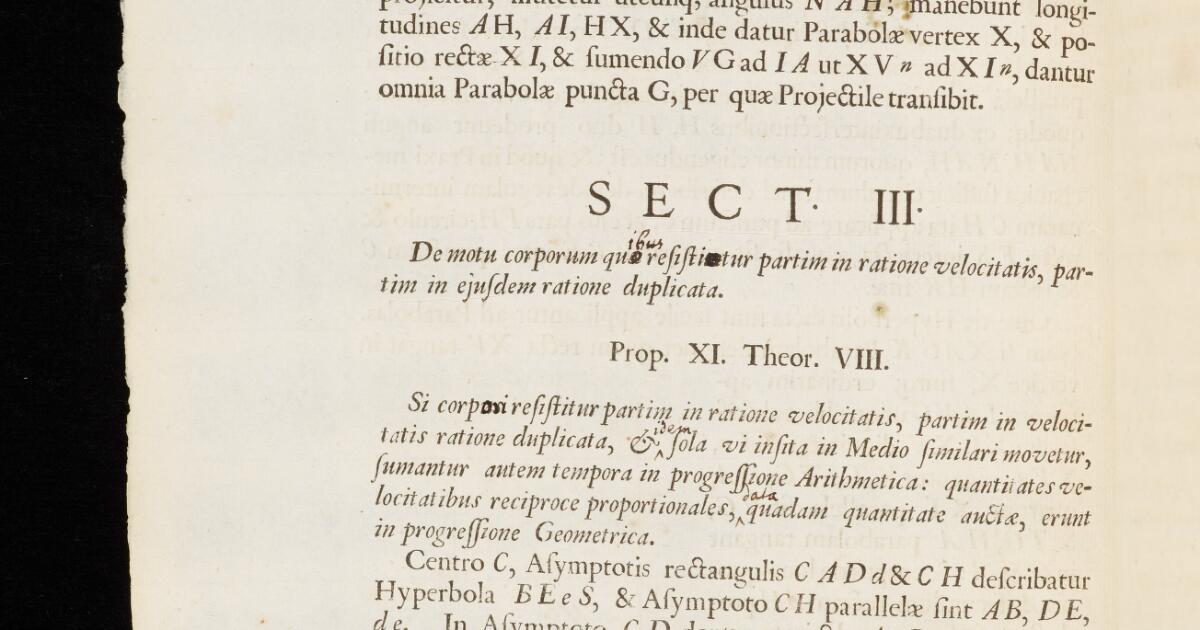 projicitur, mutetur utcunq; angulus N A H; manebunt longi-
tudines A H, A I, H X, & inde datur Parabolæ vertex X, & po-
ſitio rectæ X I, & ſumendo V G ad I A ut X V n ad X I n, dantur
omnia Parabolæ puncta G, per quæ Projectile tranſibit.
SECT. III.
ibus
De motu corporum qu reſiſtitur partim in ratione velocitatis, par-
tim in ejuſdem ratione duplicata.
Prop. XI. Theor. VIII.
Si corpori reſiſtitur partim in ratione velocitatis, partim in veloci-
idem
tatis ratione duplicata, & ‸ ſola vi inſita in Medio ſimilari movetur,
ſumantur autem tempora in progreſſione Arithmetica: quantitates ve-
data
locitatibus reciproce proportionales, ‸ quadam quantitate auctæ, erunt
in progreſſione Geometrica.
Centro C, Aſymptotis rectangulis C A D d & C H deſcribatur
Hyperbola B E e S, & Aſymptoto C H parallelæ ſint A B, D E,
d e. In Aſymptoto C D